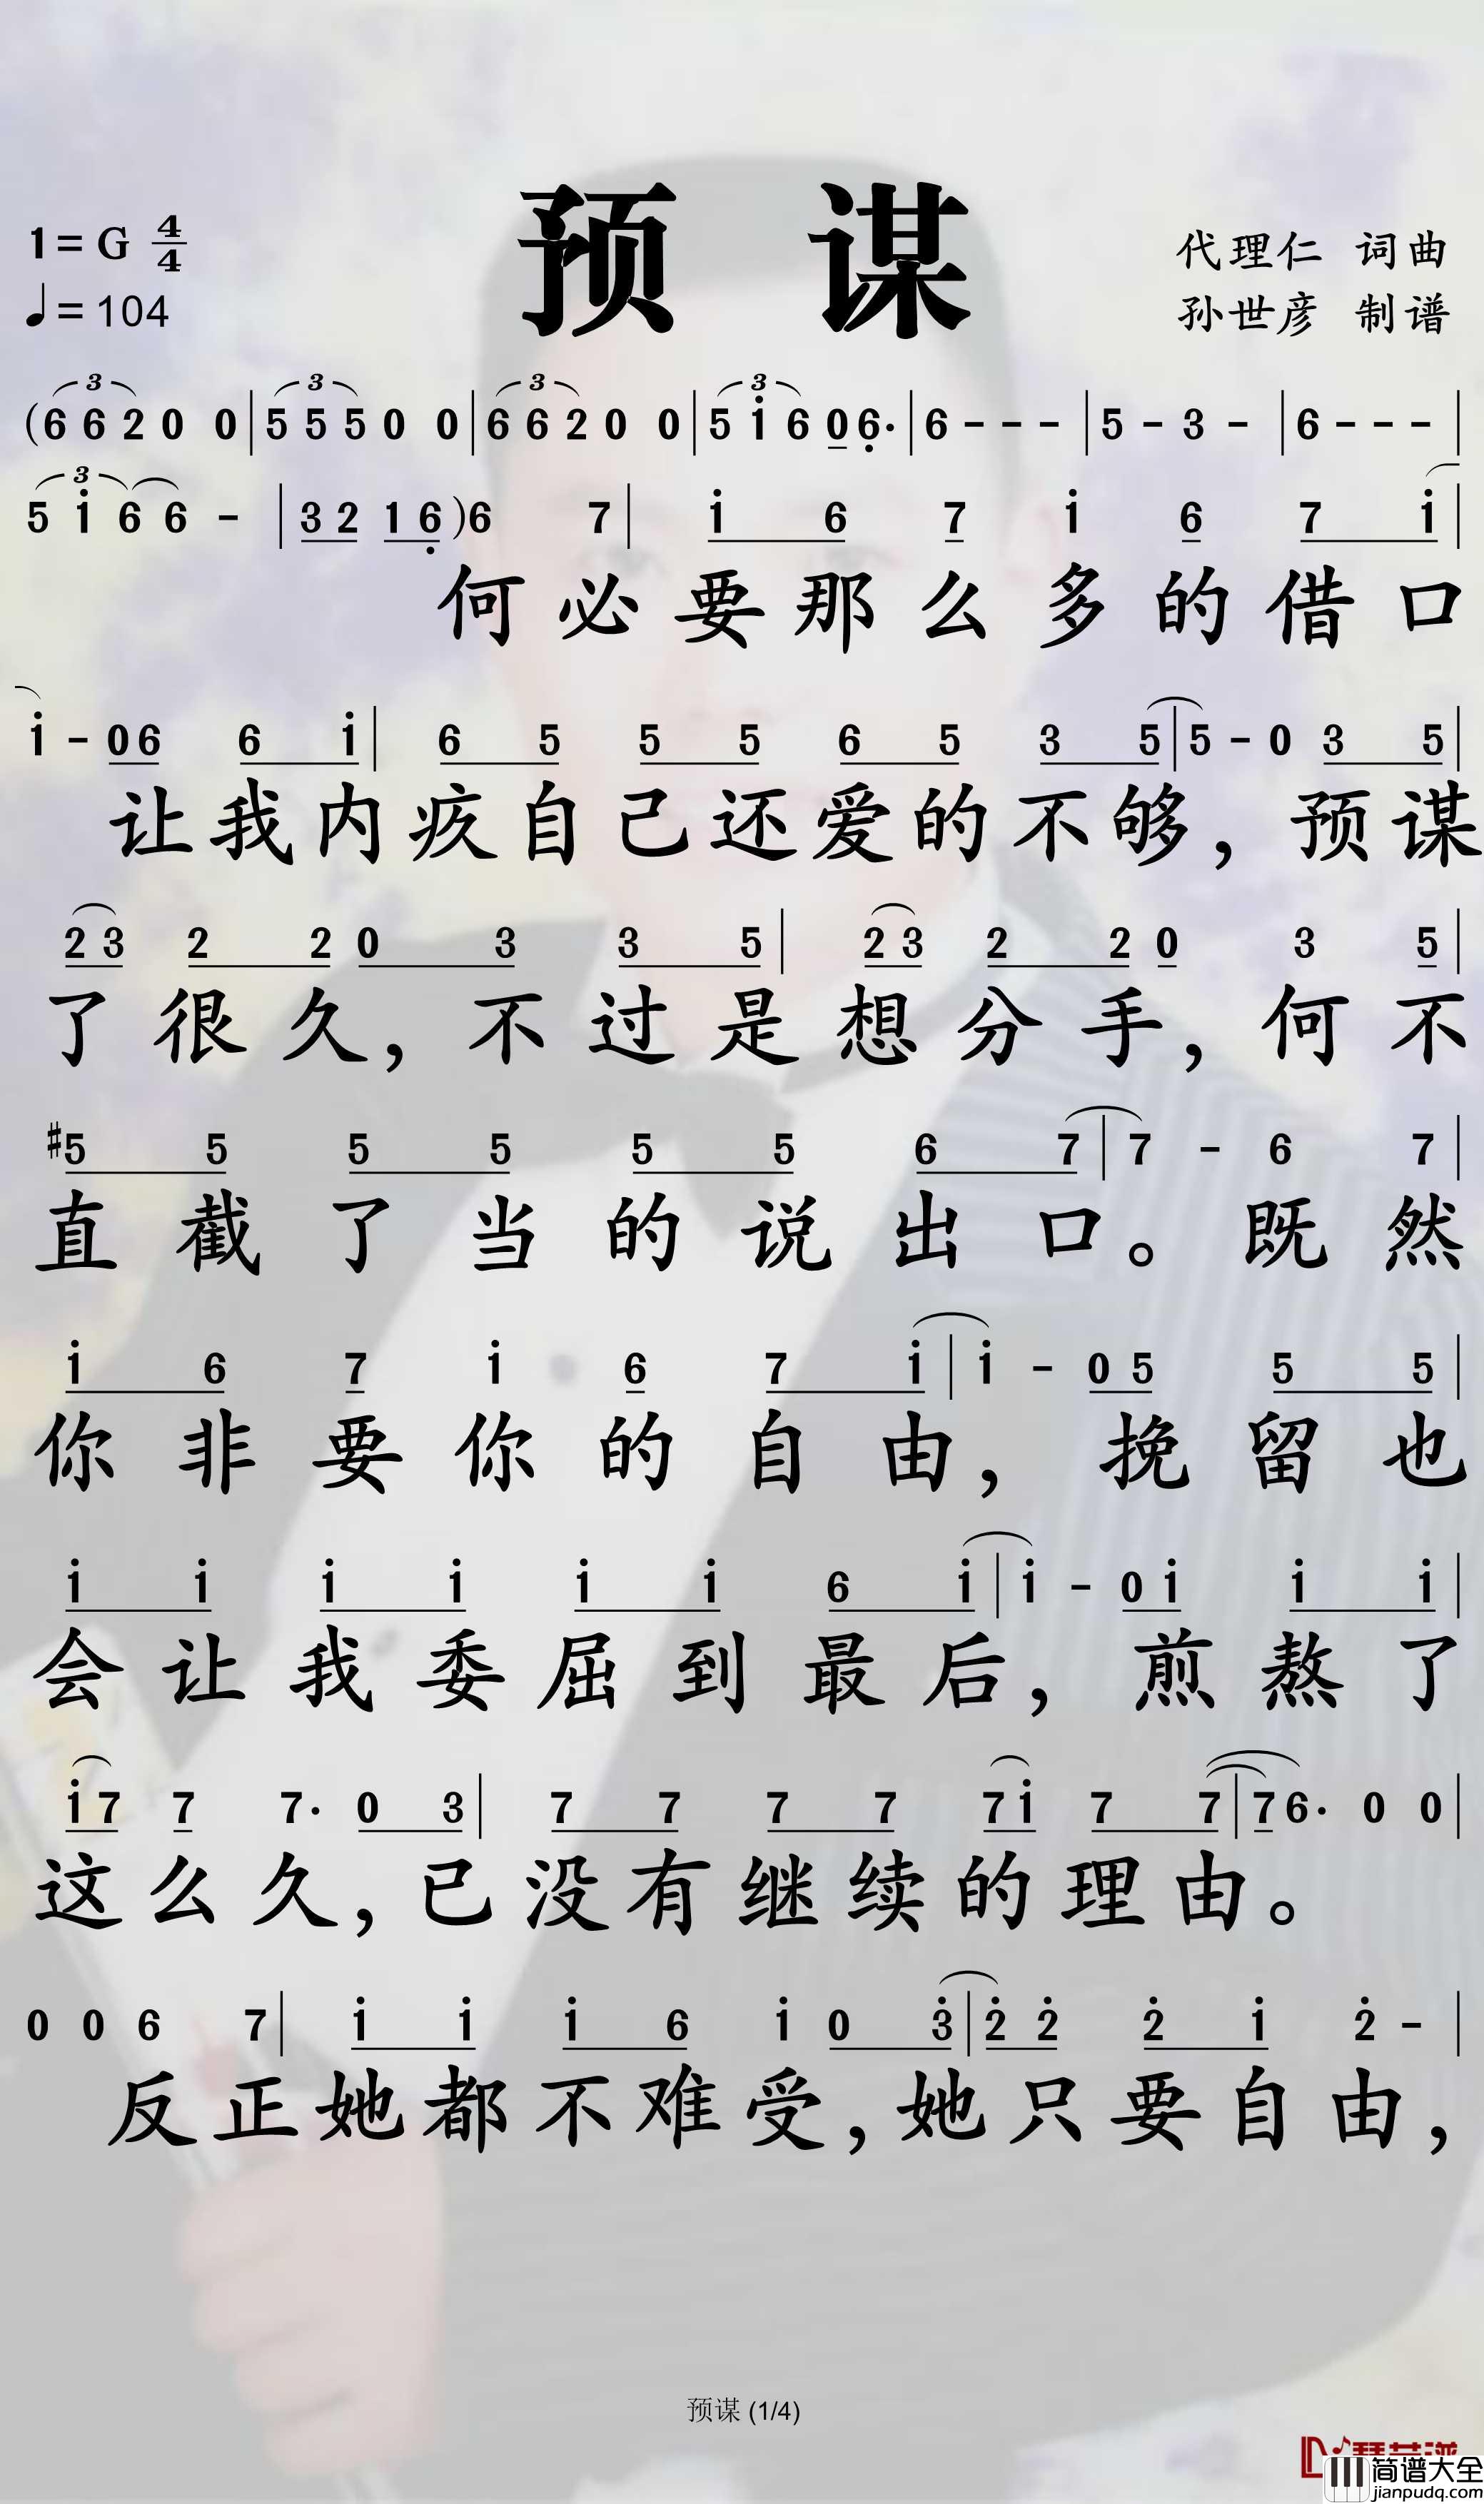 预 谋
1=G 4/4
♩=104
代理仁 词曲
孙世彦 制谱
(6 6 2 0 0 | 5 5 5 0 0 | 6 6 2 0 0 | 5 i 6 0 6· | 6 - - - | 5 - 3 - | 6 - - - |
5 i 6 6 - | 3 2 1 6 ) 6 7 | i 6 7 i 6 7 i |
何必要那么多的借口
i - 0 6 6 i | 6 5 5 5 6 5 3 5 | 5 - 0 3 5 |
让我内疚自己还爱的不够,预谋
2 3 2 2 0 3 3 5 | 2 3 2 2 0 3 5 |
了很久,不过是想分手,何不
#5 5 5 5 5 5 6 7 | 7 - 6 7 |
直截了当的说出口。既然
i 6 7 i 6 7 i | i - 0 5 5 5 |
你非要你的自由,挽留也
i i i i i i 6 i | i - 0 i i i |
会让我委屈到最后,煎熬了
i 7 7 7· 0 3 | 7 7 7 7 7 i 7 7 | 7 6· 0 0 |
这么久,已没有继续的理由。
0 0 6 7 | i i i 6 i 0 3 | 2 2 2 i 2 - |
反正她都不难受,她只要自由,
预谋 (1/4)
简谱大全
jianpudq.com